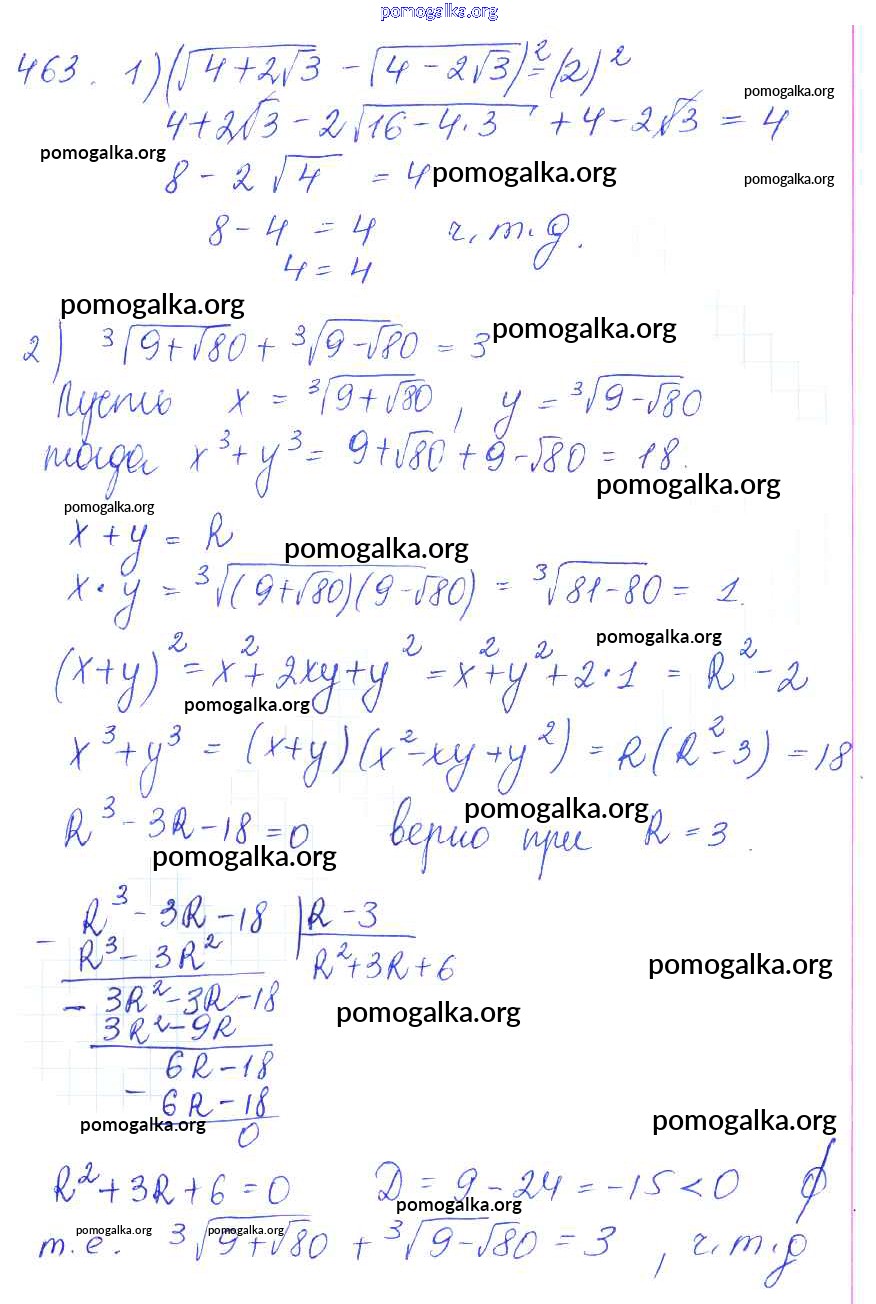 pomogalka.org
463. 1) (√(4+2√3) - √(4-2√3))² = (2)²
pomogalka.org
4+2√3 - 2√(16-4·3) + 4-2√3 = 4
pomogalka.org
8 - 2√4 = 4
pomogalka.org
pomogalka.org
8-4 = 4 ч.т.д.
4 = 4
pomogalka.org
pomogalka.org
2) ³√(9+√80) + ³√(9-√80) = 3
Пусть x = ³√(9+√80), y = ³√(9-√80)
тогда x³+y³ = 9+√80+9-√80 = 18.
pomogalka.org
pomogalka.org
x+y = R
pomogalka.org
x·y = ³√((9+√80)(9-√80)) = ³√(81-80) = 1.
pomogalka.org
(x+y)² = x²+2xy+y² = x²+y²+2·1 = R²-2
pomogalka.org
x³+y³ = (x+y)(x²-xy+y²) = R(R²-3) = 18
pomogalka.org
R³-3R-18=0 верно при R=3.
pomogalka.org
- R³-3R-18 | R-3
R³-3R² R²+3R+6
pomogalka.org
- 3R²-3R-18
pomogalka.org
3R²-9R
6R-18
- 6R-18
pomogalka.org
pomogalka.org
0
R²+3R+6=0 D = 9-24 = -15 < 0 ∅
pomogalka.org
pomogalka.org pomogalka.org
т.е. ³√(9+√80) + ³√(9-√80) = 3, ч.т.д